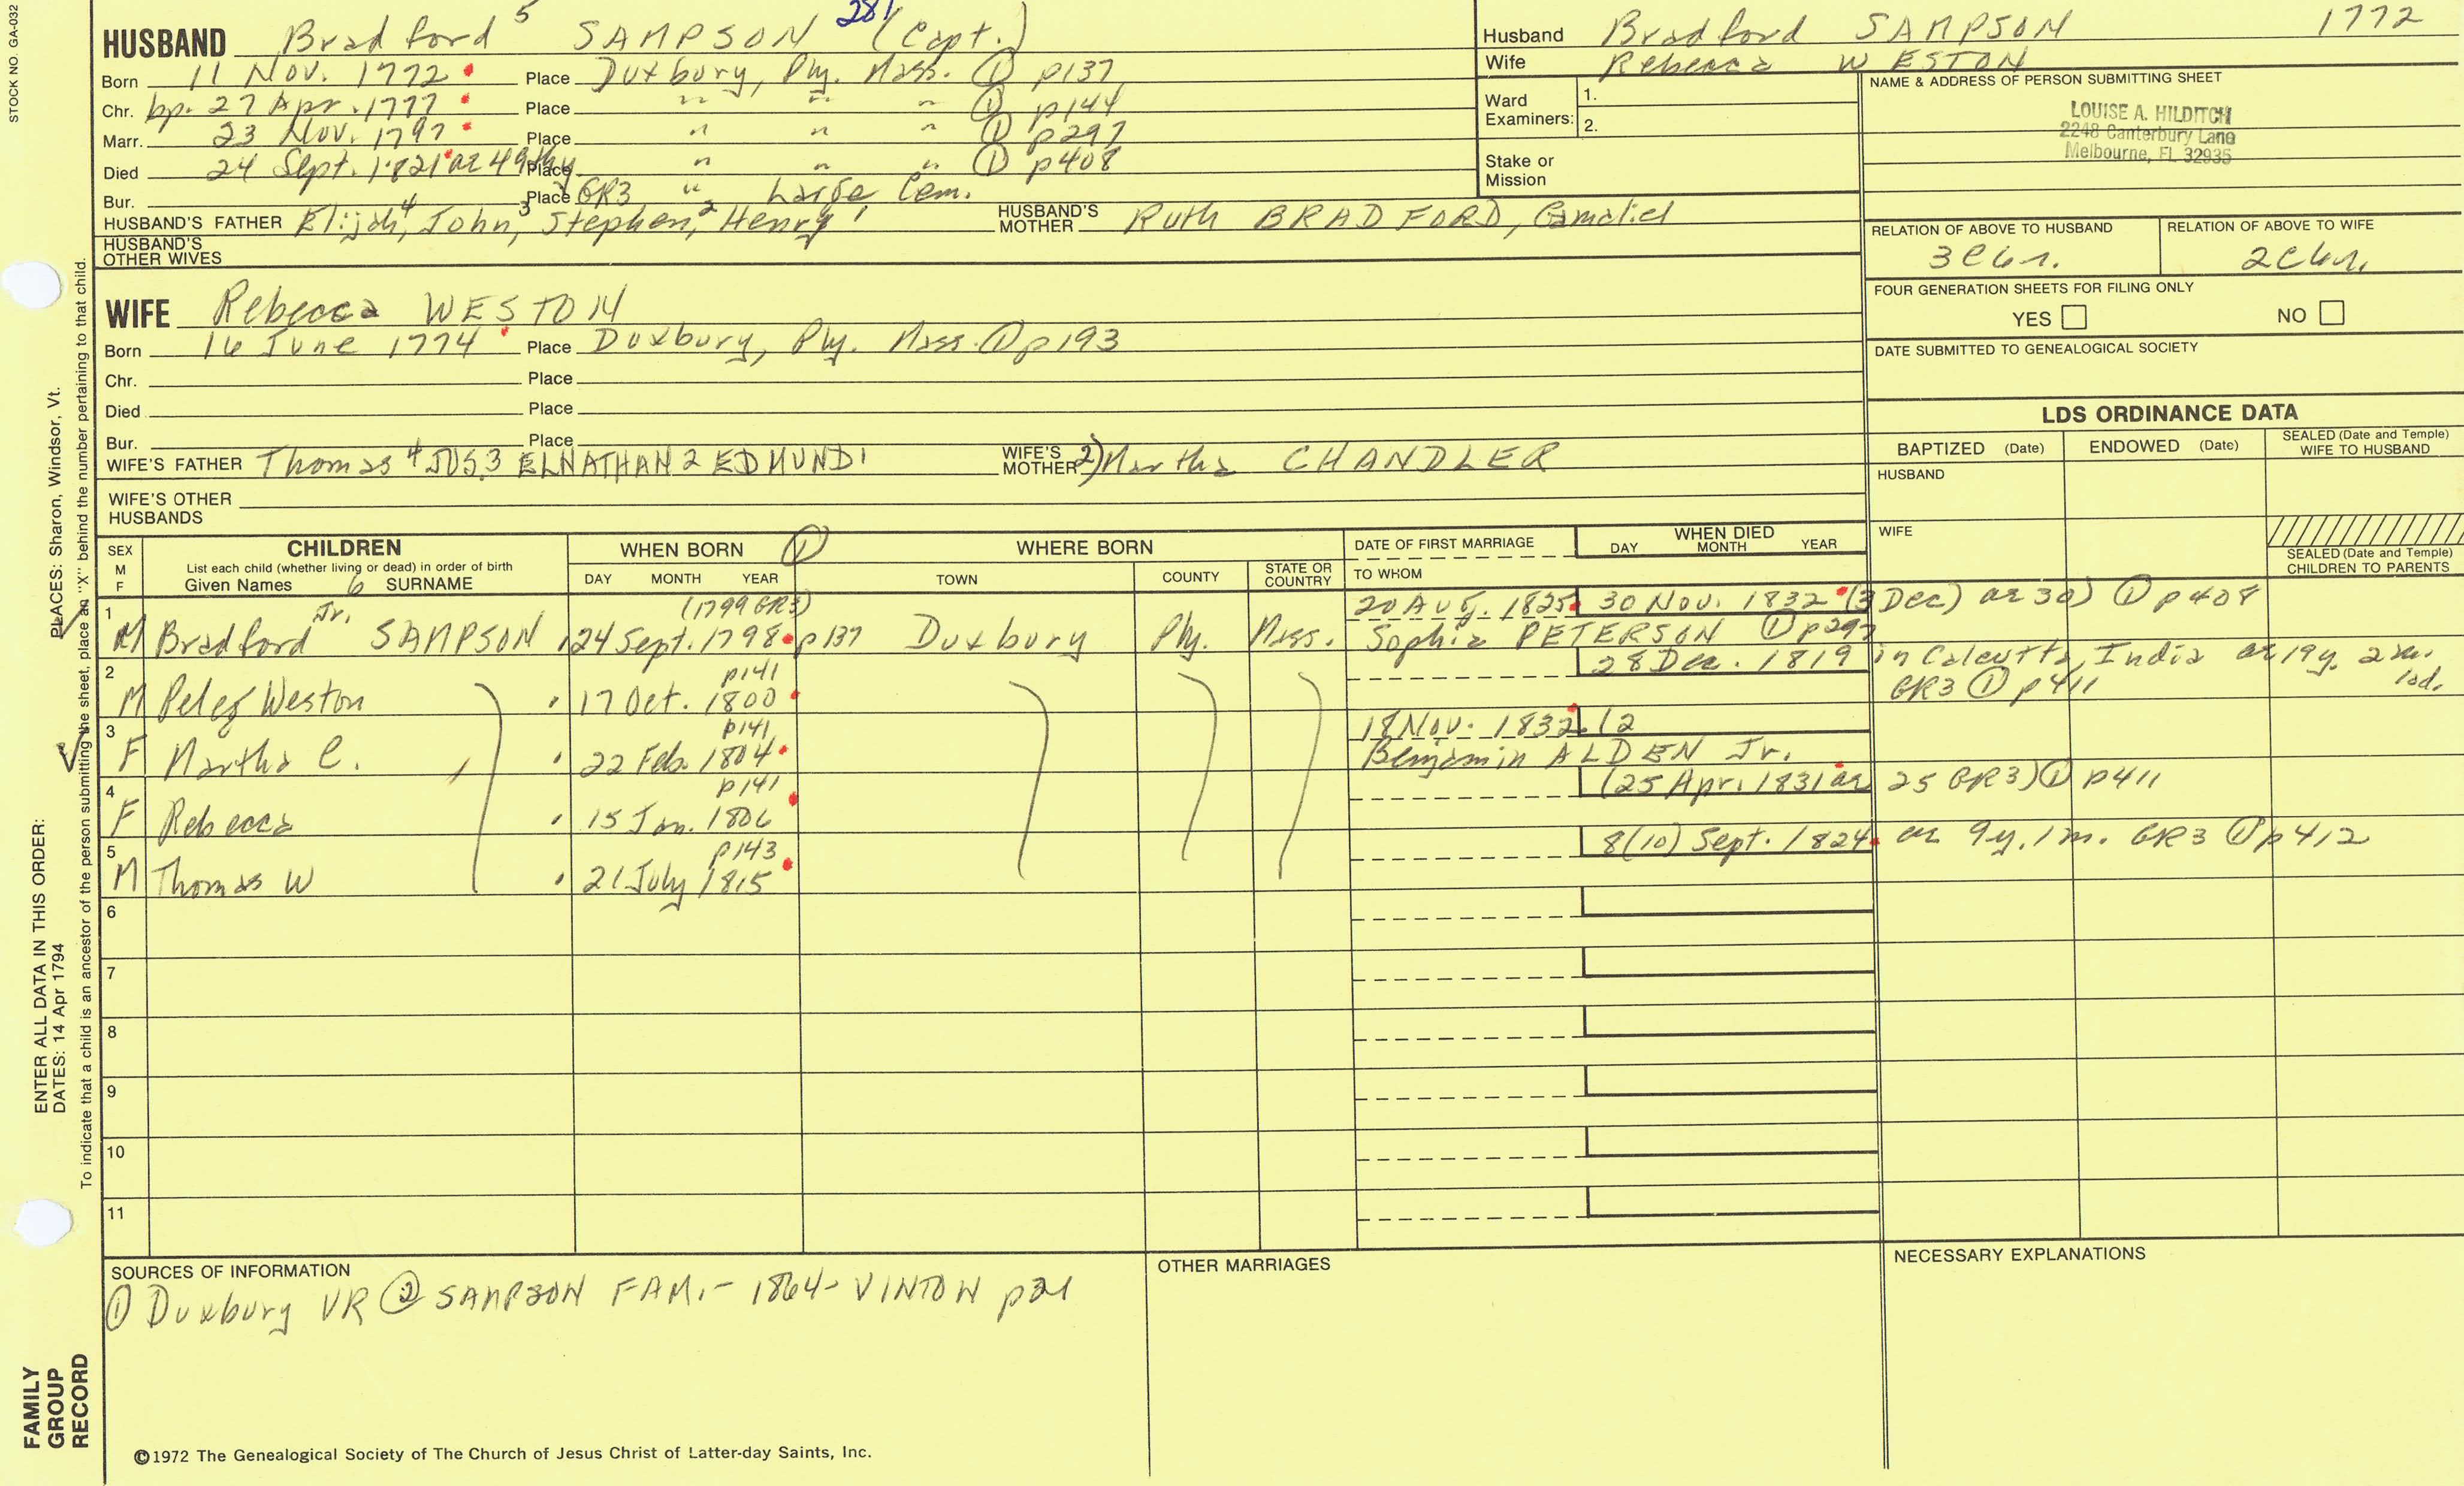 STOCK NO. GA-032
HUSBAND Bradford 5 SAMPSON 281 (Capt.)
Born 11 Nov. 1772 Place Duxbury, Ply. Mass. ① p137
Chr. bp. 27 Apr. 1777 Place " " " ① p144
Marr. 23 Nov. 1797 Place " " " ① p297
Died 24 Sept. 1821 ae 49 Place " " " ① p408
Bur. Place GR3 " Large Cem.
HUSBAND'S FATHER Elijah,4 John,3 Stephen,2 Henry1 HUSBAND'S MOTHER Ruth BRADFORD, Gamaliel
HUSBAND'S OTHER WIVES
Husband Bradford SAMPSON 1772
Wife Rebecca WESTON
Ward Examiners: 1.
2.
Stake or Mission
NAME & ADDRESS OF PERSON SUBMITTING SHEET
LOUISE A. HILDITCH
2248 Canterbury Lane
Melbourne, FL 32935
RELATION OF ABOVE TO HUSBAND RELATION OF ABOVE TO WIFE
3C6r. 2C6r.
FOUR GENERATION SHEETS FOR FILING ONLY
YES NO
DATE SUBMITTED TO GENEALOGICAL SOCIETY
WIFE Rebecca WESTON
Born 16 June 1774 Place Duxbury, Ply. Mass. ① p193
Chr. Place
Died Place
Bur. Place
WIFE'S FATHER Thomas 4 JOS.3 ELNATHAN 2 EDMUND1 WIFE'S MOTHER 2) Martha CHANDLER
WIFE'S OTHER HUSBANDS
LDS ORDINANCE DATA
BAPTIZED (Date) ENDOWED (Date) SEALED (Date and Temple) WIFE TO HUSBAND
HUSBAND
WIFE
SEALED (Date and Temple) CHILDREN TO PARENTS
SEX M F CHILDREN List each child (whether living or dead) in order of birth Given Names 6 SURNAME
WHEN BORN ① DAY MONTH YEAR
WHERE BORN TOWN COUNTY STATE OR COUNTRY
DATE OF FIRST MARRIAGE TO WHOM
WHEN DIED DAY MONTH YEAR
1 (1799 GR3) 20 Aug. 1825 30 Nov. 1832 (3 Dec) ae 30) ① p408
M Bradford Jr. SAMPSON 24 Sept. 1798 p137 Duxbury Ply. Mass. Sophia PETERSON ① p297
2 p141 28 Dec. 1819 in Calcutta, India ae 19y. 2m. 10d.
M Peleg Weston 17 Oct. 1800 GR3 ① p411
3 p141 18 Nov. 1832 12
F Martha C. 22 Feb. 1804 Benjamin ALDEN Jr.
4 p141 (25 Apr. 1831 ae 25 GR3) ① p411
F Rebecca 15 Jan. 1806
5 p143 8(10) Sept. 1824 ae 9y. 1m. GR3 ① p412
M Thomas W 21 July 1815
6
7
8
9
10
11
SOURCES OF INFORMATION
① Duxbury VR ② SAMPSON FAM. - 1864 - VINTON p21
OTHER MARRIAGES
NECESSARY EXPLANATIONS
©1972 The Genealogical Society of The Church of Jesus Christ of Latter-day Saints, Inc.
FAMILY GROUP RECORD
ENTER ALL DATA IN THIS ORDER:
DATES: 14 Apr 1794
PLACES: Sharon, Windsor, Vt.
To indicate that a child is an ancestor of the person submitting the sheet, place an "X" behind the number pertaining to that child.